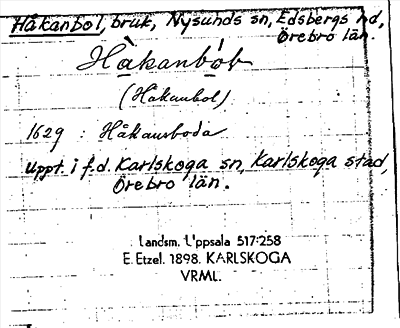 Håkanbol, bruk, Nysunds sn, Edsbergs hd,
Örebro län.
Håkanbòb
(Håkanbol)
1629 : Håkansboda
Uppt. i f.d. Karlskoga sn, Karlskoga stad,
Örebro län.
Landsm. Uppsala 517:258
E. Etzel. 1898. KARLSKOGA
VRML.